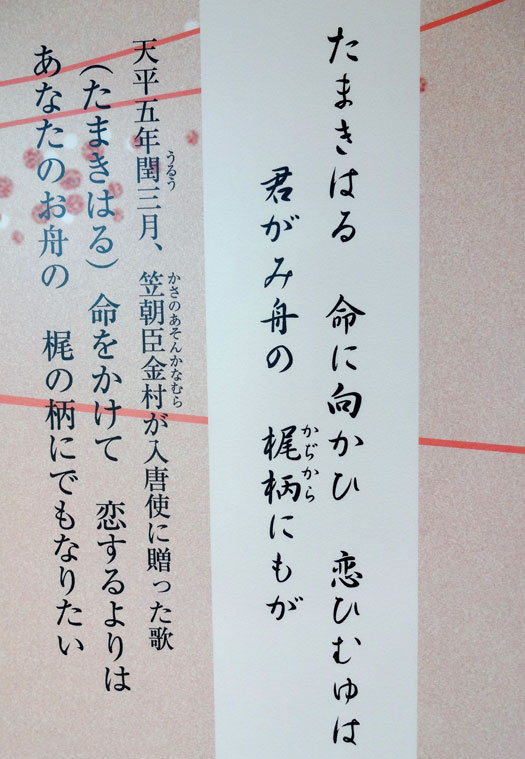 たまきはる　命に向かひ　恋ひむゆは
かぢから
君がみ舟の　梶柄にもが
うるう　かさのあそんかなむら
天平五年閏三月、笠朝臣金村が入唐使に贈った歌
（たまきはる）命をかけて　恋するよりは
あなたのお舟の　梶の柄にでもなりたい